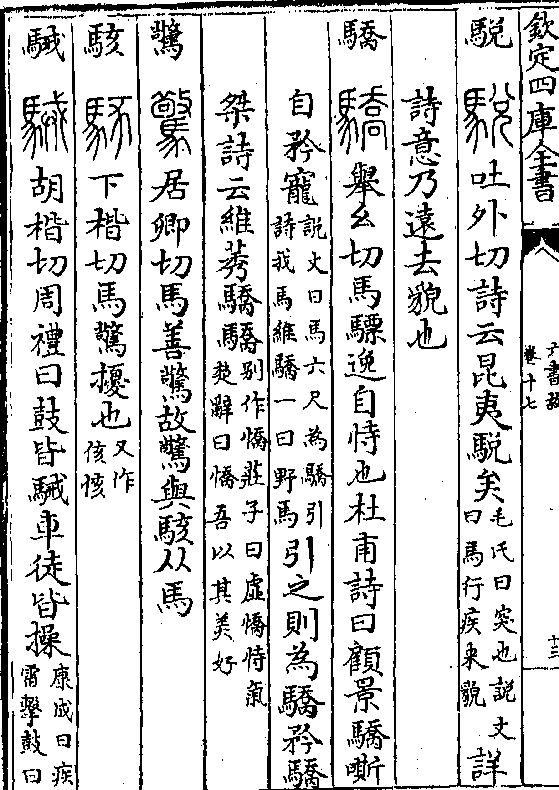 欽定四庫全書
六書故
卷十七
十三
駾 吐外切詩云昆夷駾矣毛氏曰突也説文曰馬行疾來貌詳
詩意乃遠去貌也
驕 舉幺切馬驃逸自恃也杜甫詩曰顧景驕嘶
自矜寵説文曰馬六尺為驕引詩我馬維驕一曰野馬引之則為驕矜驕
桀詩云維莠驕驕别作憍莊子曰虛憍恃氣楚辭曰憍吾以其美好
驚 居卿切馬善驚故驚與駭从馬
駭 下楷切馬驚擾也又作侅㤥
駴 胡楷切周禮曰鼓皆駴車徒皆操康成曰疾雷擊鼓曰